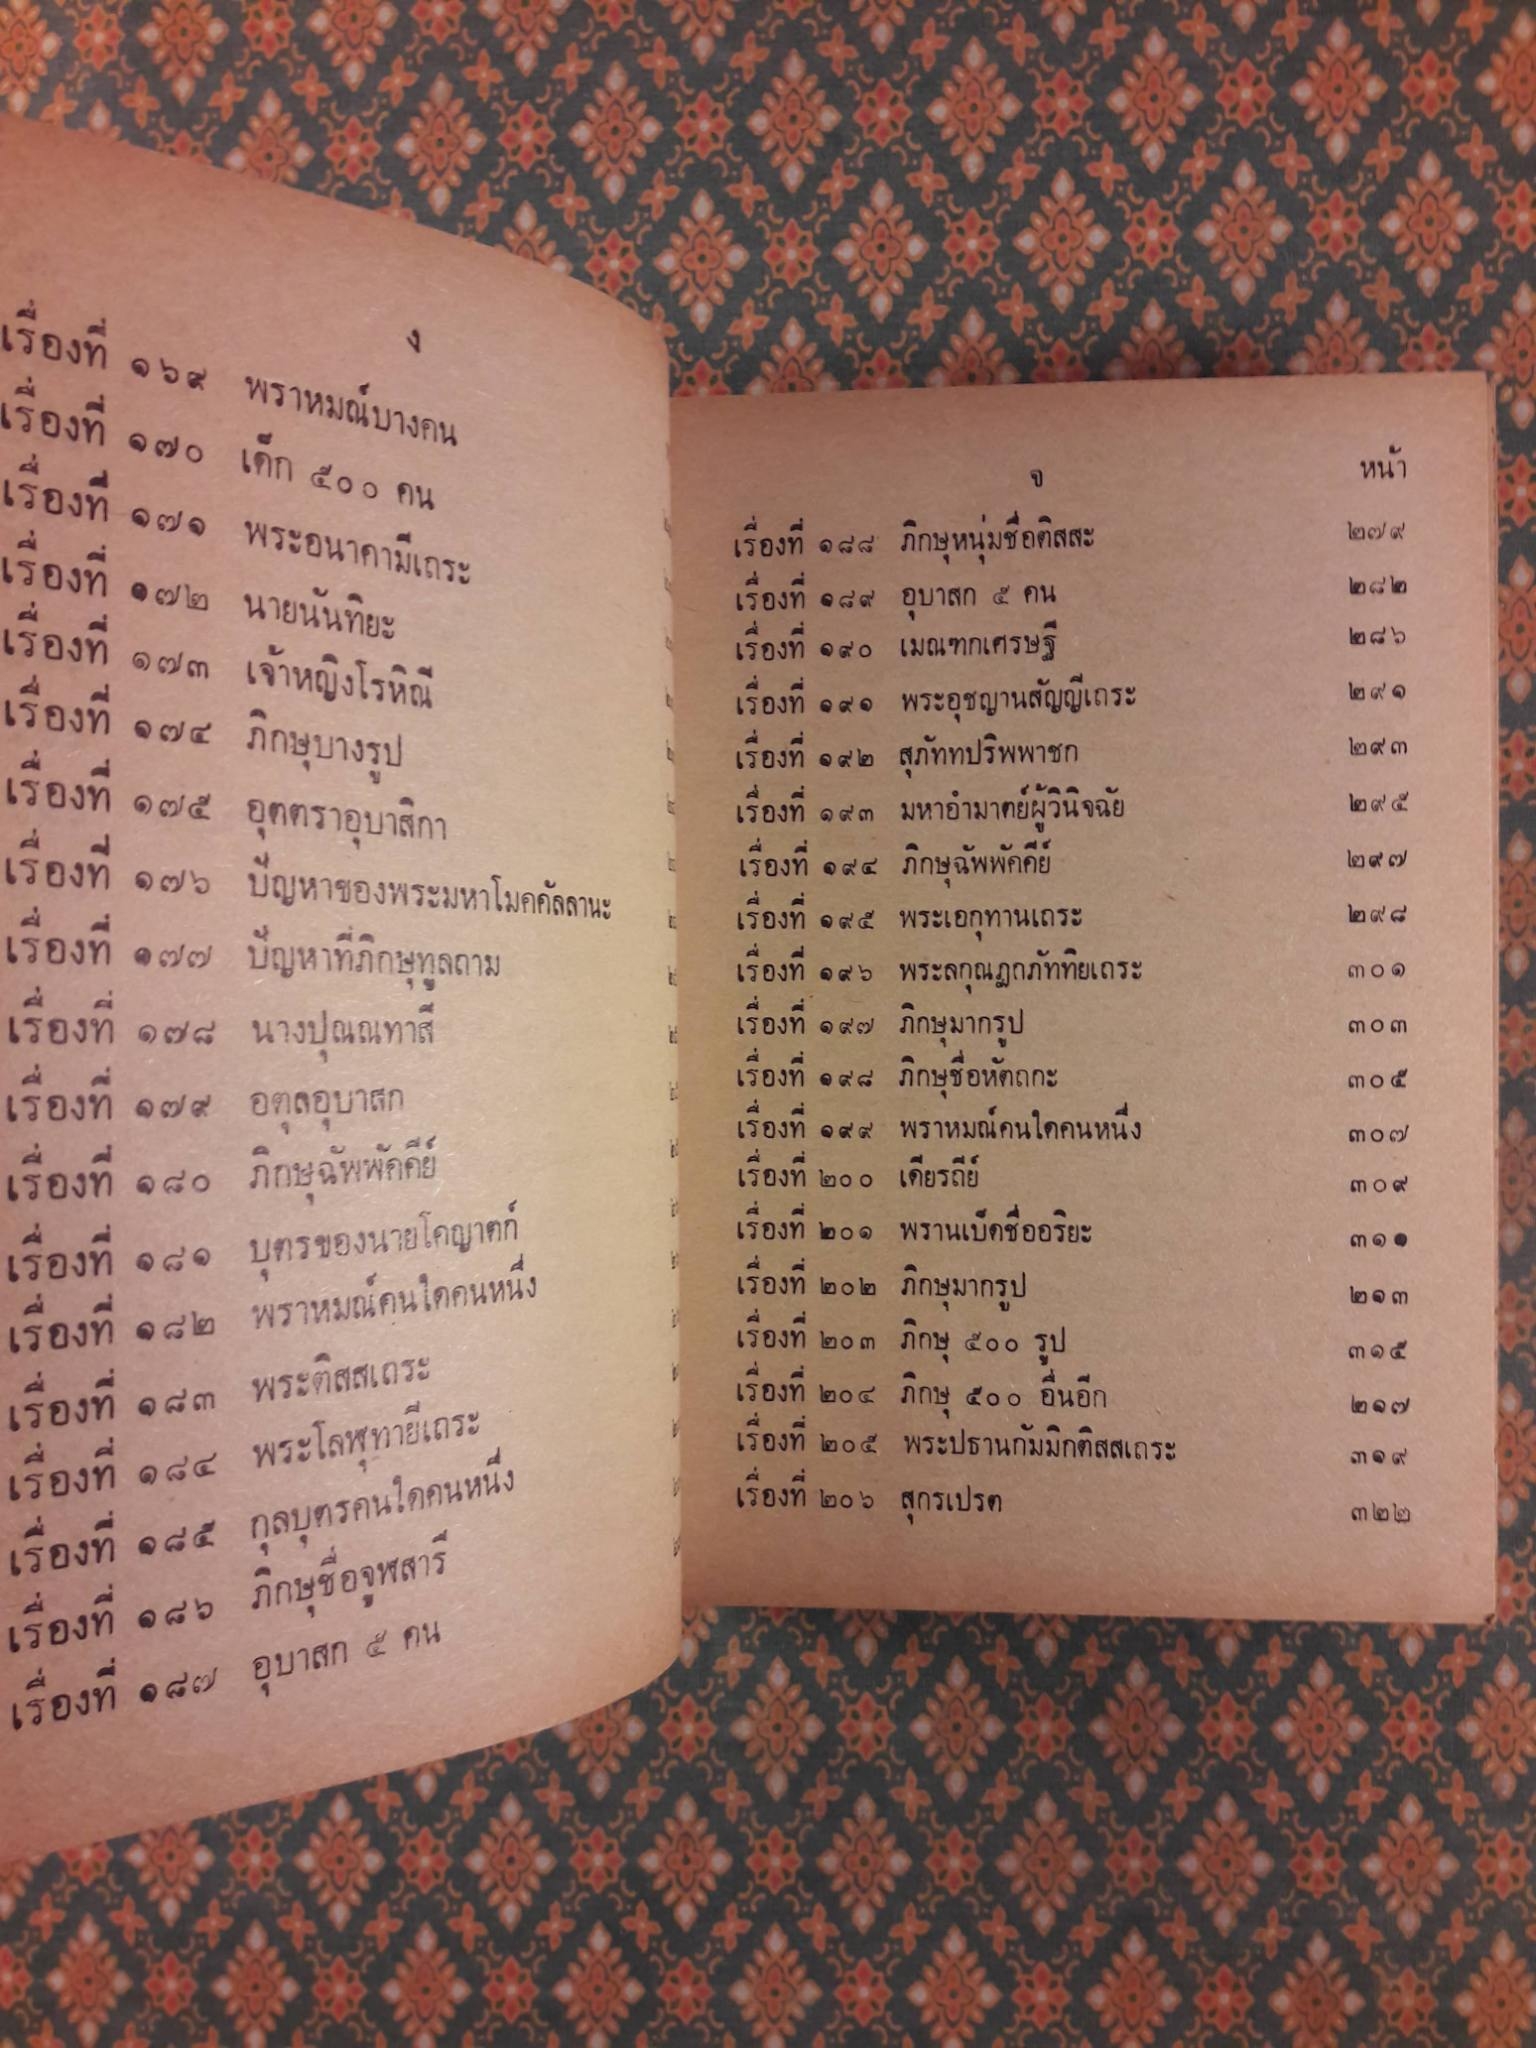 ง
เรื่องที่ ๑๖๙ พราหมณ์บางคน
เรื่องที่ ๑๗๐ เด็ก ๕๐๐ คน
เรื่องที่ ๑๗๑ พระอนาคามีเถระ
เรื่องที่ ๑๗๒ นายนันทิยะ
เรื่องที่ ๑๗๓ เจ้าหญิงโรหิณี
เรื่องที่ ๑๗๔ ภิกษุบางรูป
เรื่องที่ ๑๗๕ อุตตราอุบาสิกา
เรื่องที่ ๑๗๖ ปัญหาของพระมหาโมคคัลลานะ
เรื่องที่ ๑๗๗ ปัญหาที่ภิกษุทูลถาม
เรื่องที่ ๑๗๘ นางปุณณทาสี
เรื่องที่ ๑๗๙ อตุลอุบาสก
เรื่องที่ ๑๘๐ ภิกษุฉัพพัคคีย์
เรื่องที่ ๑๘๑ บุตรของนายโคญาตก์
เรื่องที่ ๑๘๒ พราหมณ์คนใดคนหนึ่ง
เรื่องที่ ๑๘๓ พระติสสเถระ
เรื่องที่ ๑๘๔ พระโลฬุทายีเถระ
เรื่องที่ ๑๘๕ กุลบุตรคนใดคนหนึ่ง
เรื่องที่ ๑๘๖ ภิกษุชื่อจูฬสารี
เรื่องที่ ๑๘๗ อุบาสก ๕ คน
จ หน้า
เรื่องที่ ๑๘๘ ภิกษุหนุ่มชื่อติสสะ ๒๗๙
เรื่องที่ ๑๘๙ อุบาสก ๕ คน ๒๘๒
เรื่องที่ ๑๙๐ เมณฑกเศรษฐี ๒๘๖
เรื่องที่ ๑๙๑ พระอุชญานสัญญีเถระ ๒๙๑
เรื่องที่ ๑๙๒ สุภัททปริพพาชก ๒๙๓
เรื่องที่ ๑๙๓ มหาอำมาตย์ผู้วินิจฉัย ๒๙๕
เรื่องที่ ๑๙๔ ภิกษุฉัพพัคคีย์ ๒๙๗
เรื่องที่ ๑๙๕ พระเอกุทานเถระ ๒๙๘
เรื่องที่ ๑๙๖ พระลกุณฏกภัททิยเถระ ๓๐๑
เรื่องที่ ๑๙๗ ภิกษุมากรูป ๓๐๓
เรื่องที่ ๑๙๘ ภิกษุชื่อหัตถกะ ๓๐๕
เรื่องที่ ๑๙๙ พราหมณ์คนใดคนหนึ่ง ๓๐๗
เรื่องที่ ๒๐๐ เดียรถีย์ ๓๐๙
เรื่องที่ ๒๐๑ พรานเบ็ดชื่ออริยะ ๓๑๑
เรื่องที่ ๒๐๒ ภิกษุมากรูป ๒๑๓
เรื่องที่ ๒๐๓ ภิกษุ ๕๐๐ รูป ๓๑๕
เรื่องที่ ๒๐๔ ภิกษุ ๕๐๐ อื่นอีก ๒๑๗
เรื่องที่ ๒๐๕ พระปธานกัมมิกติสสเถระ ๓๑๙
เรื่องที่ ๒๐๖ สุกรเปรต ๓๒๒